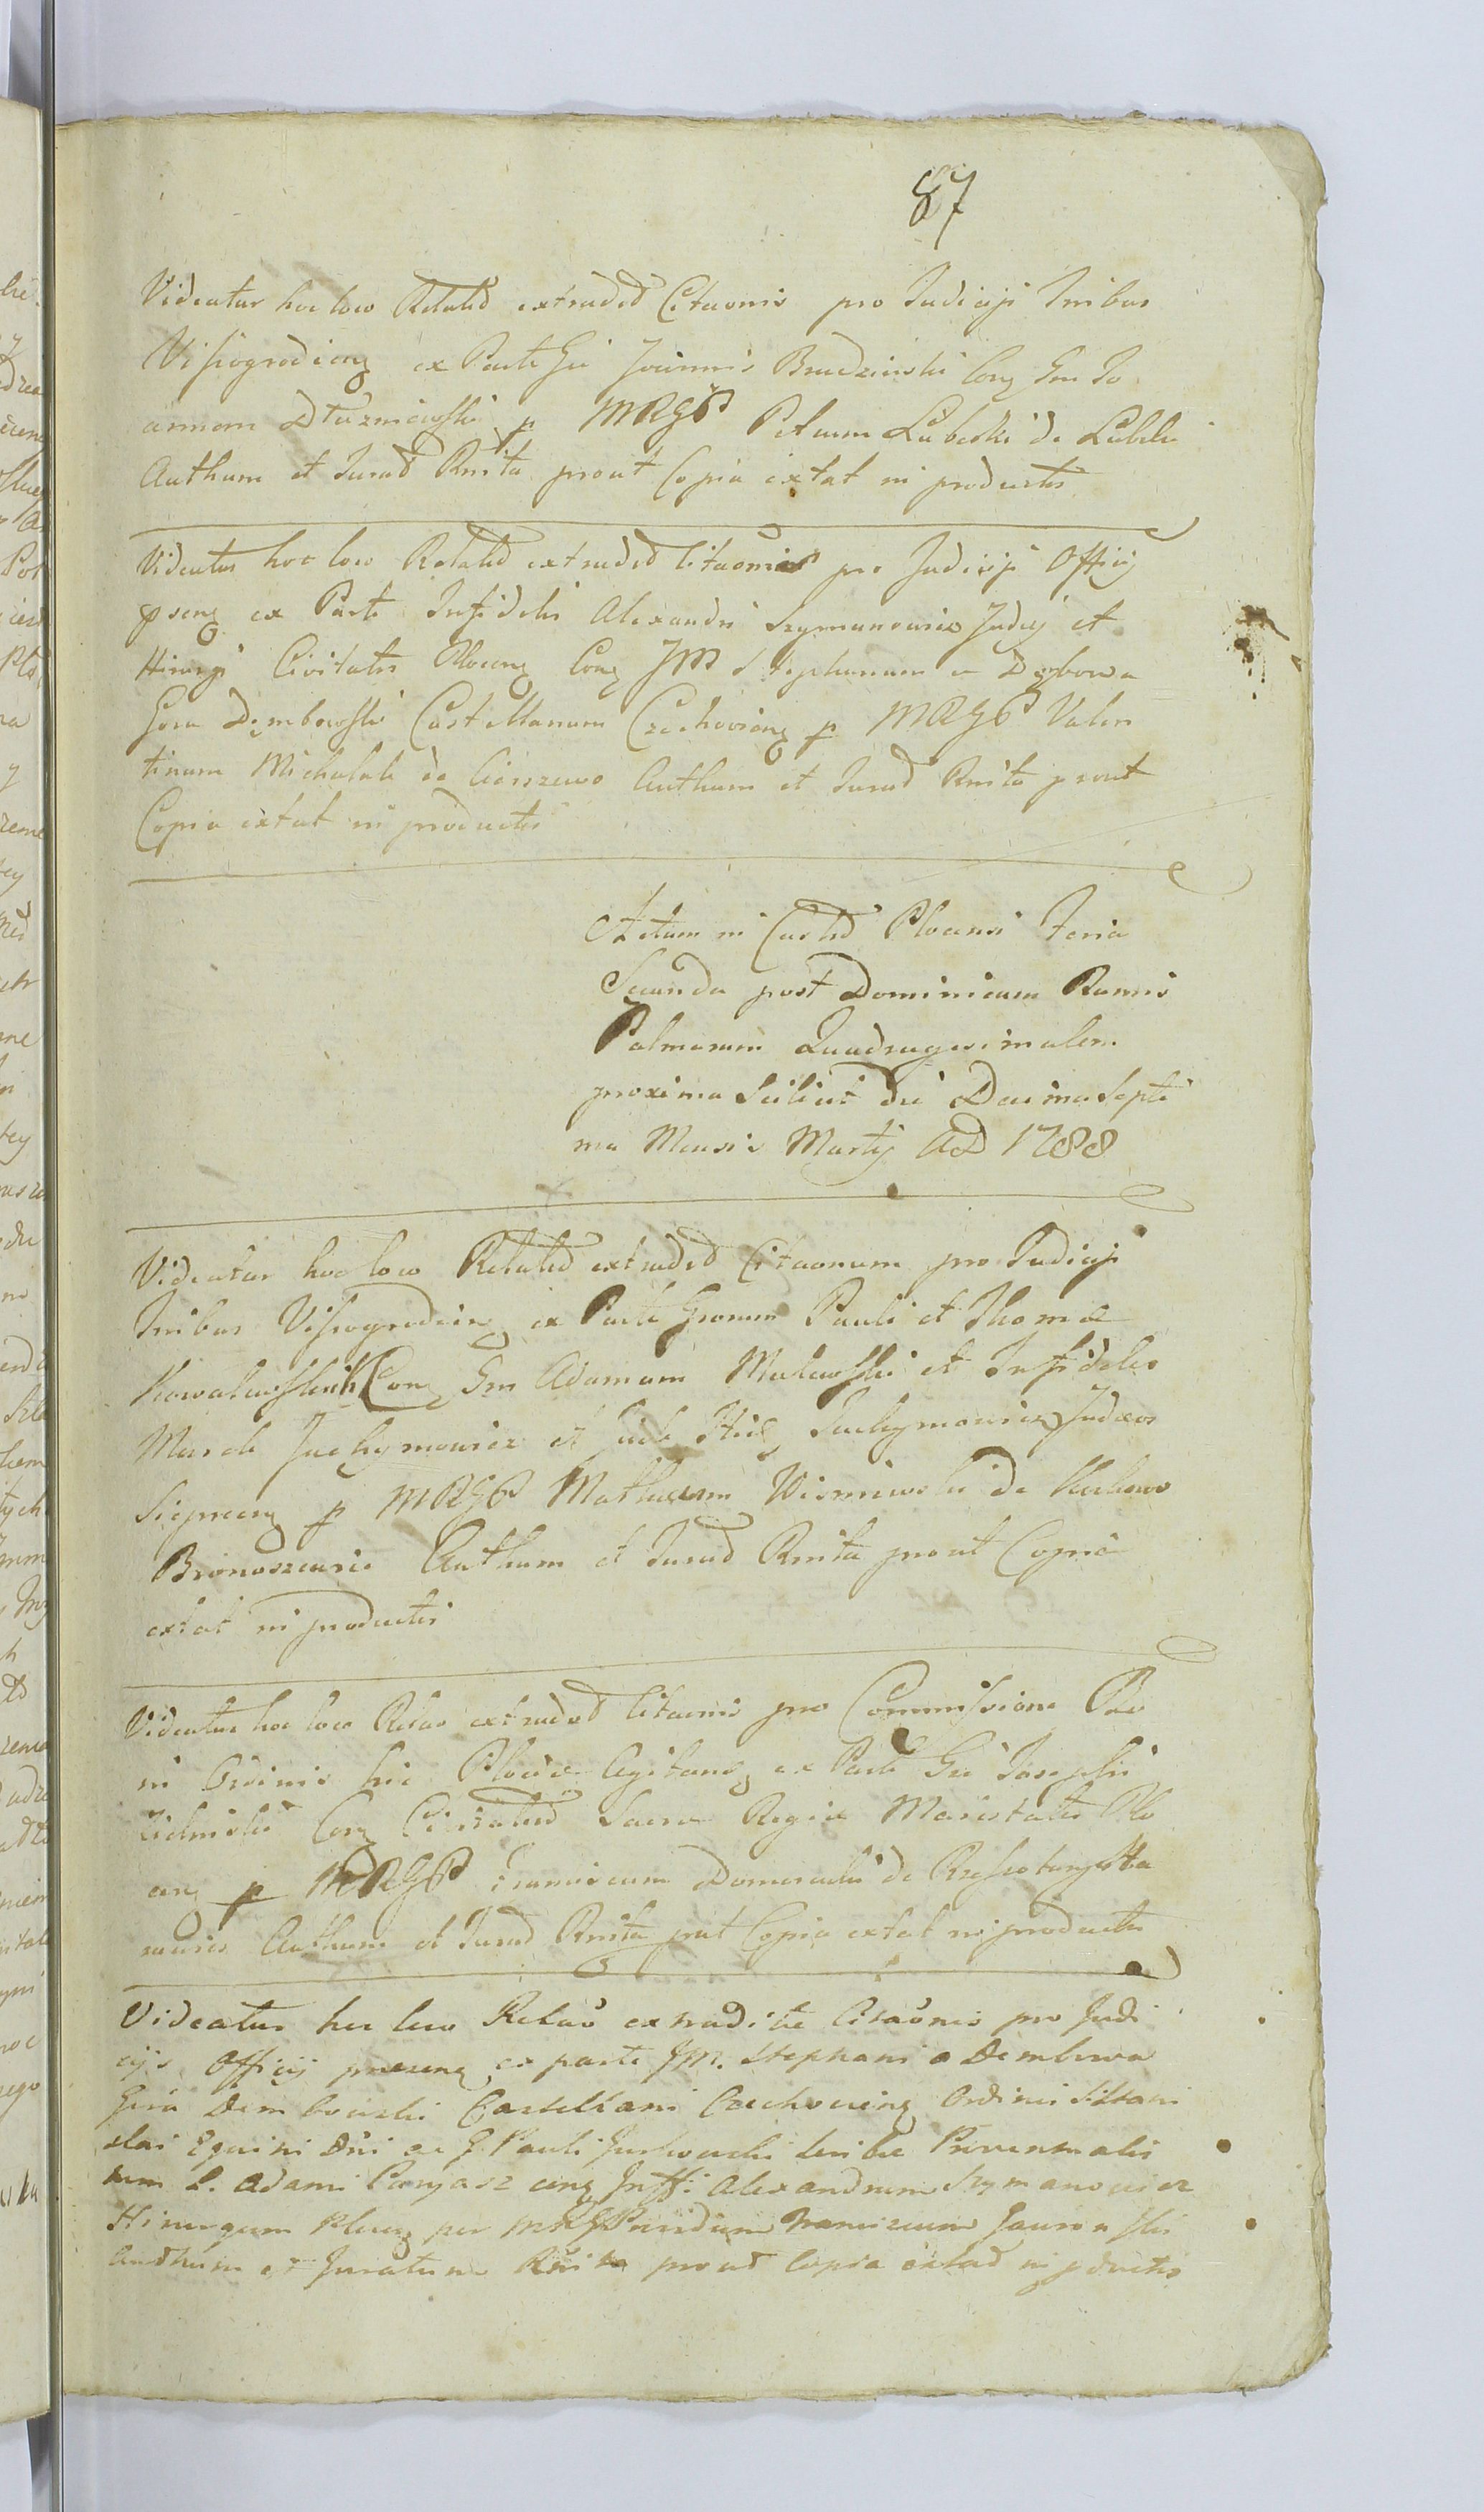 87
Videatur hoc loco Relatio extradid Citaonis pro Judicijs Tribus
Vissogrodien ex Parte Gsi Joannis Brudzinski Con Gsm Jo
annem Dłuzniewski p MRGP Petrum Lubeski de Lubki
Authum et Jurad Rnita prout Copia extat in productis
Videatur hoc loco Relatid extradid Citaonis pro Judicijs Officij
psen ex Parte Infidelis Alexandri Szymanowicz Judej et
Hirurgi Civitatis Plocen Con JM Stephanum a Dembowa
Gora Dembowski Castellanum Czechovien p MRGP Valen
tinum Michalak de Cieszewo Authum et Jurad Rnita prout
Copia extat in productis
Actum in Castrd Plocensi Feria
Secunda post Dominicam Ramis
Palmarum Quadragesimalem
proxima Scilicet die Decima Septi
ma Mensis Martij AD 1788
Videatur hoc loco Relatid extradid Citaonum pro Judicijs
Tribus Vissogrodien ex Parte Gsorum Pauli et Thomæ
Kowalewskich Con Gsm Adamum Malewski et Infideles
Marek Jachymowicz et Jachymowicz Judæos
Sieprcen p MRGP Matheum Wisniewski de
Bronoszewice Authum et Jurad Rnita prout Copia
extat in productis
Videatur hoc loco Relao extradid Citaonis pro Commissione Bo
ni Ordinis hic Plociæ Agitan ex Parte Gsi Josephi
Zielinski Con Civitatem Sacræ Regiæ Maiestatis Plo
cen p MRGP Franciscum Domeradzki de
Authum et Jurad Rnita prout Copia extat in productis
Videatur hoc loco Relaõ extraditæ Citaõnis pro Judi
cijs Officij præsen ex parte JM. Stephani a Dembowa
Góra Dembowski Castellani Czechovien Ordinis S Stani
slai Equitis Dñi ac G. Pauli Scribæ Proventualis
tum L. Adami con Infi: Alexandrum Szymanowicz
Hirurgum Plocen per MRGP Franciscum
Authum et Juratum Rñita prout Copia extad in pductis